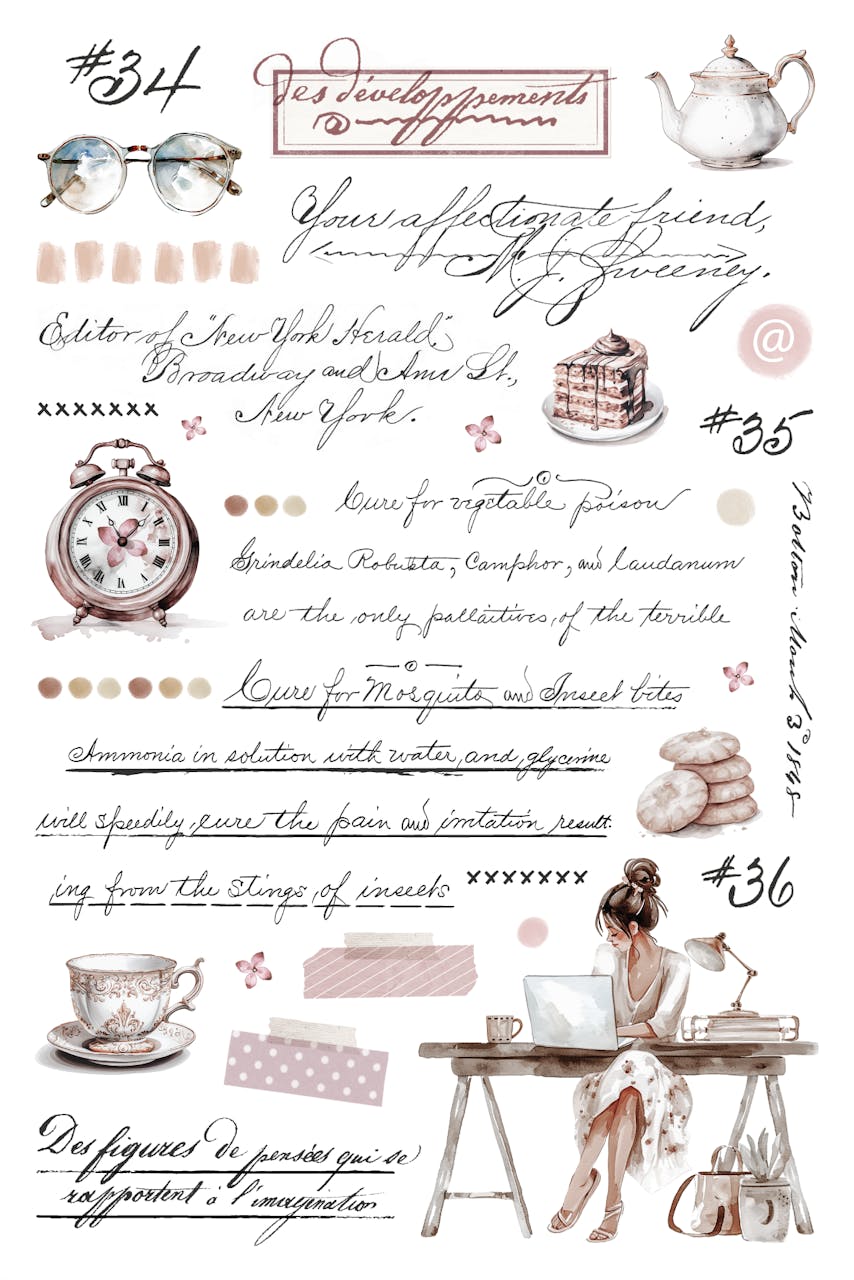 #34
des développements
Your affectionate friend,
M. J. Sweeney.
Editor of "New York Herald."
Broadway and Ann St.,
New York.
@
xxxxxxx
#35
XII I II III IIII V VI VII VIII IX X XI
Cure for vegetable poison
Grindelia Robusta, Camphor, and laudanum
are the only pallaitives, of the terrible
Bolton March 3d 1848
Cure for Mosquito and Insect bites
Ammonia in solution with water, and, glycerine
will speedily, cure the pain and irritation result.
ing from the stings, of insects
xxxxxxx
#36
Des figures de pensées qui se
rapportent à l'imagination